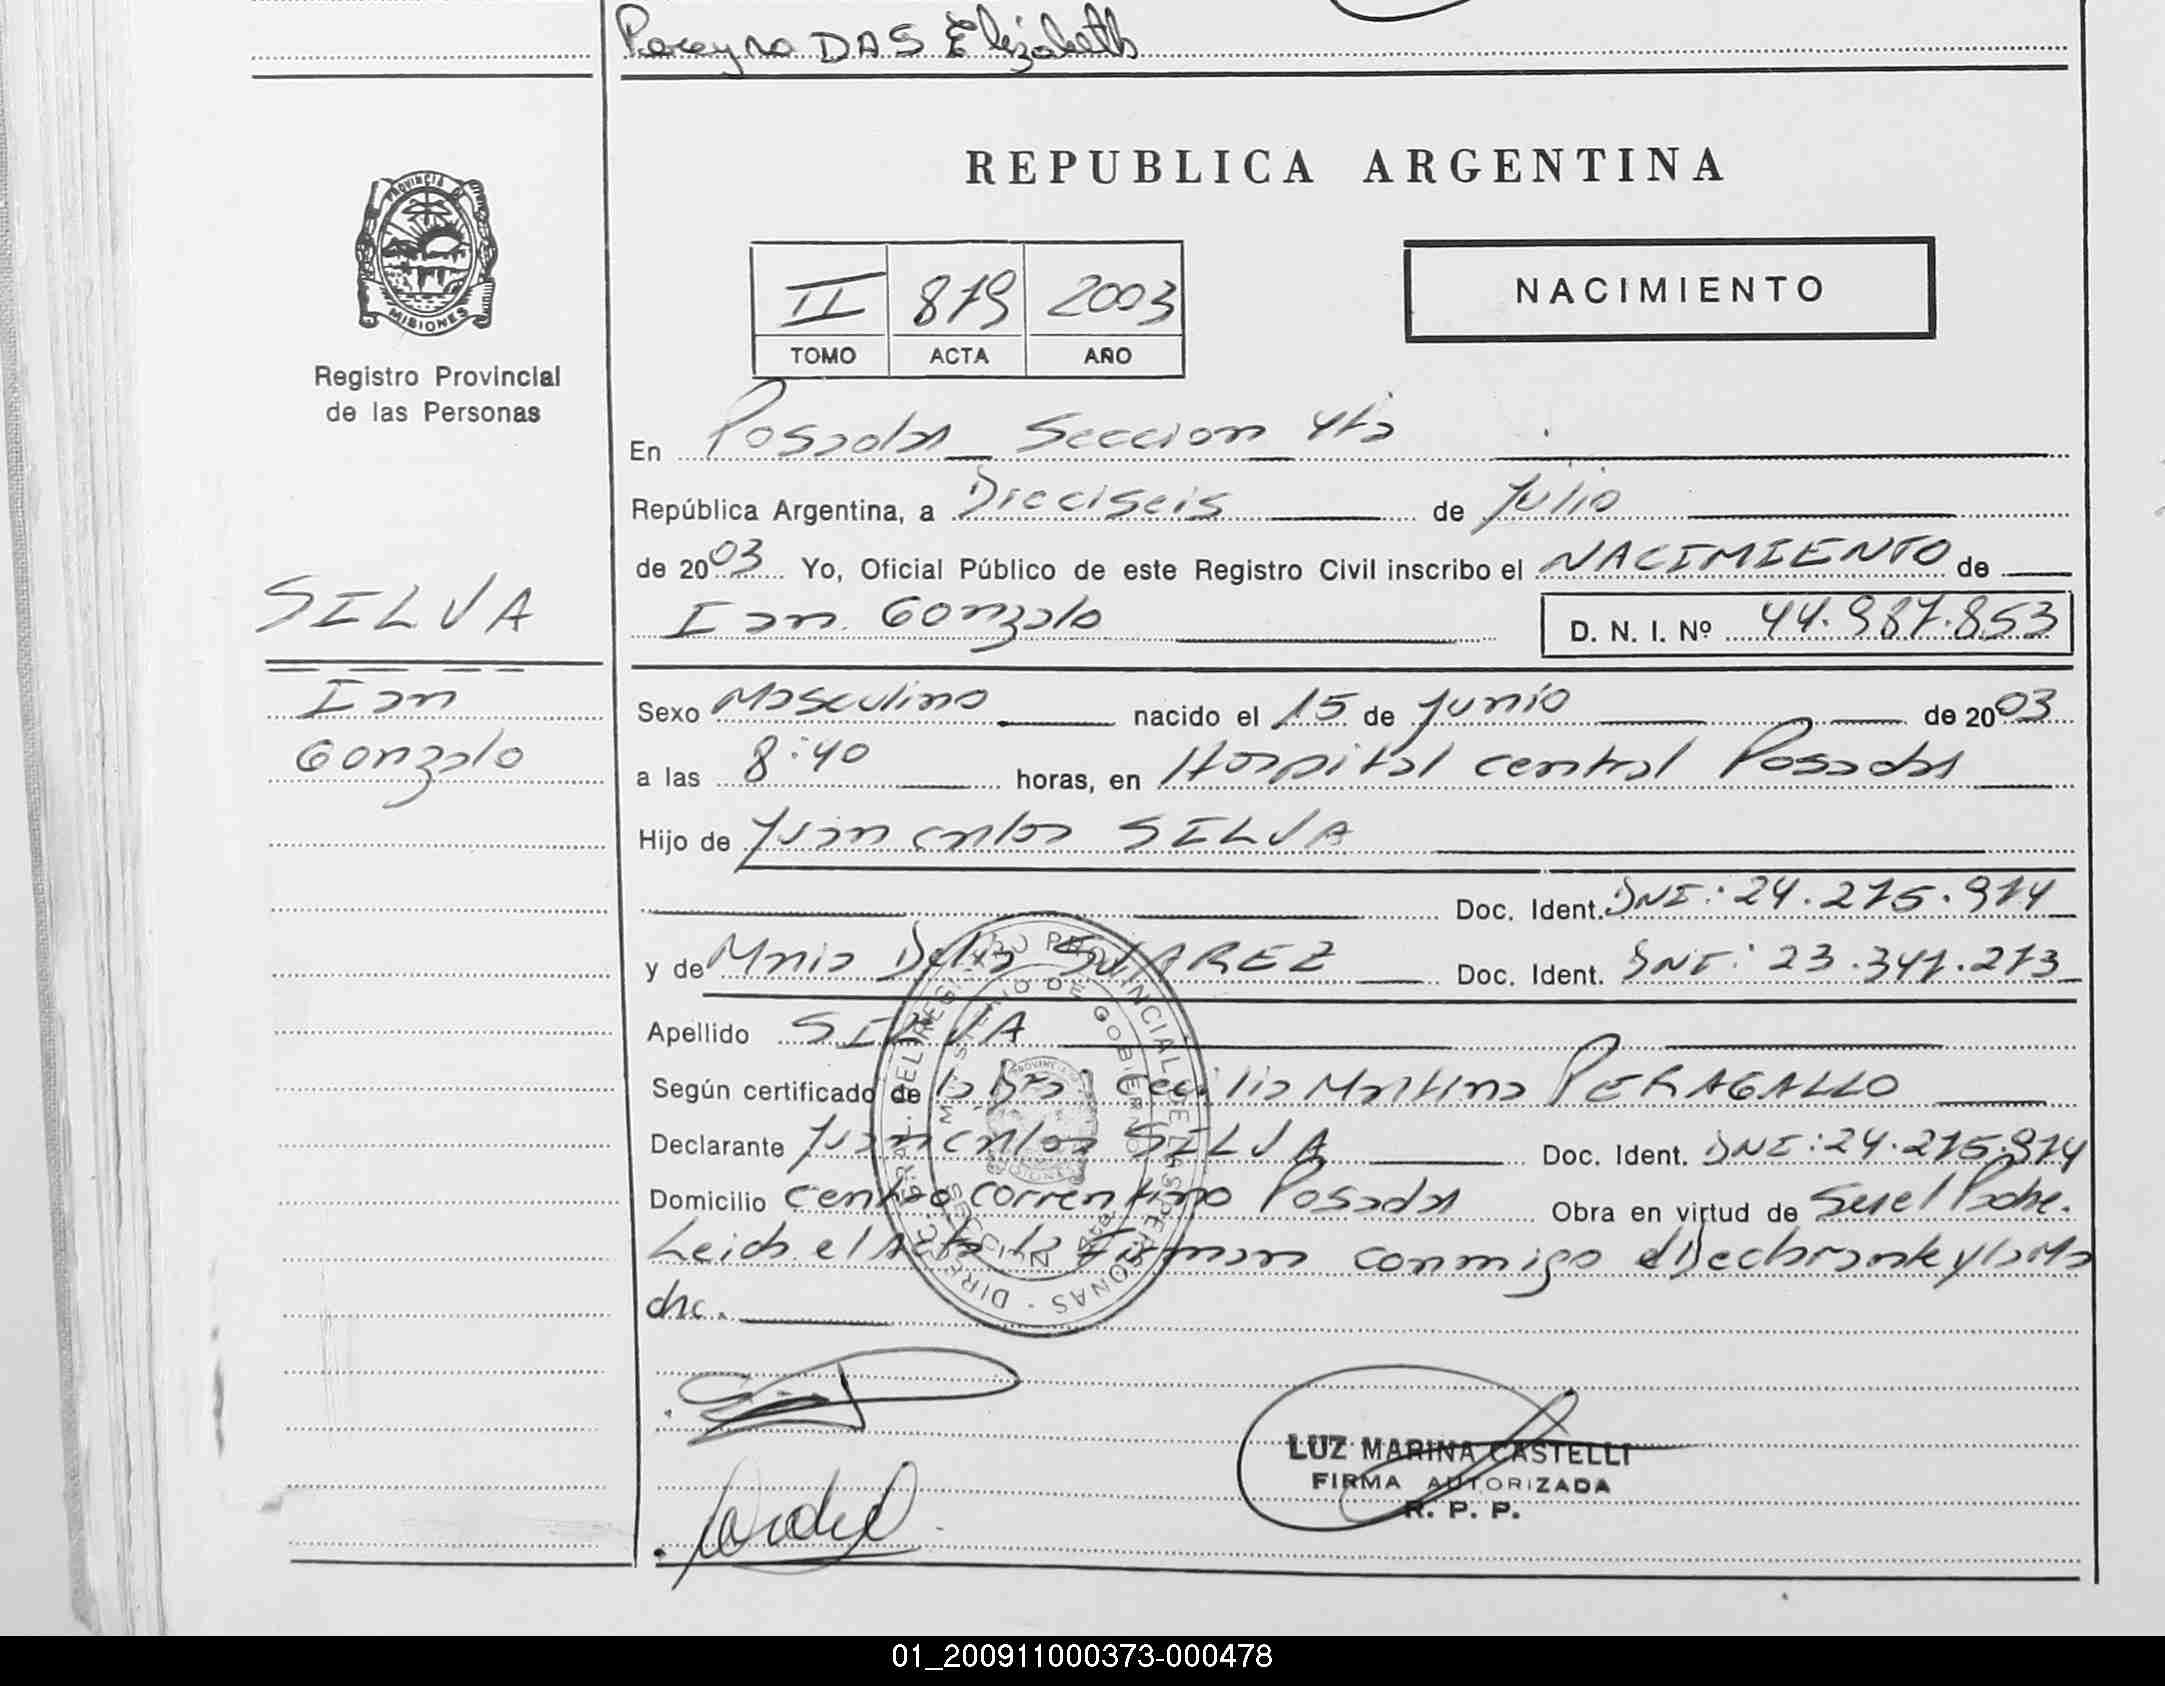 Pereyra DAS Elizabeth
PROVINCIA DE
MISIONES
Registro Provincial
de las Personas
REPUBLICA ARGENTINA
II 879 2003
TOMO ACTA AÑO
NACIMIENTO
En Posadas Seccion 4ta
República Argentina, a Dieciseis de Julio
de 2003 Yo, Oficial Público de este Registro Civil inscribo el NACIMIENTO de
Ian Gonzalo D. N. I. Nº 44.987.853
SILVA
Ian
Gonzalo
Sexo Masculino nacido el 15 de Junio de 2003
a las 8:40 horas, en Hospital central Posadas
Hijo de Juan carlos SILVA
Doc. Ident. DNI: 24.275.974
y de Maria Delia SUAREZ Doc. Ident. DNI: 23.347.273
Apellido SILVA
Según certificado de la Dra. Cecilia Martina PERAGALLO
Declarante Juan carlos SILVA Doc. Ident. DNI: 24.275.974
Domicilio centro correntino Posadas Obra en virtud de Ser el Padre.
Leida el Acta la Firman conmigo el Declarante y la Ma
dre.
DIREC. GRAL. DEL REGISTRO PROVINCIAL DE LAS PERSONAS
MINISTERIO DE GOBIERNO
SECCION 4ta
LUZ MARINA CASTELLI
FIRMA AUTORIZADA
R. P. P.
01_200911000373-000478